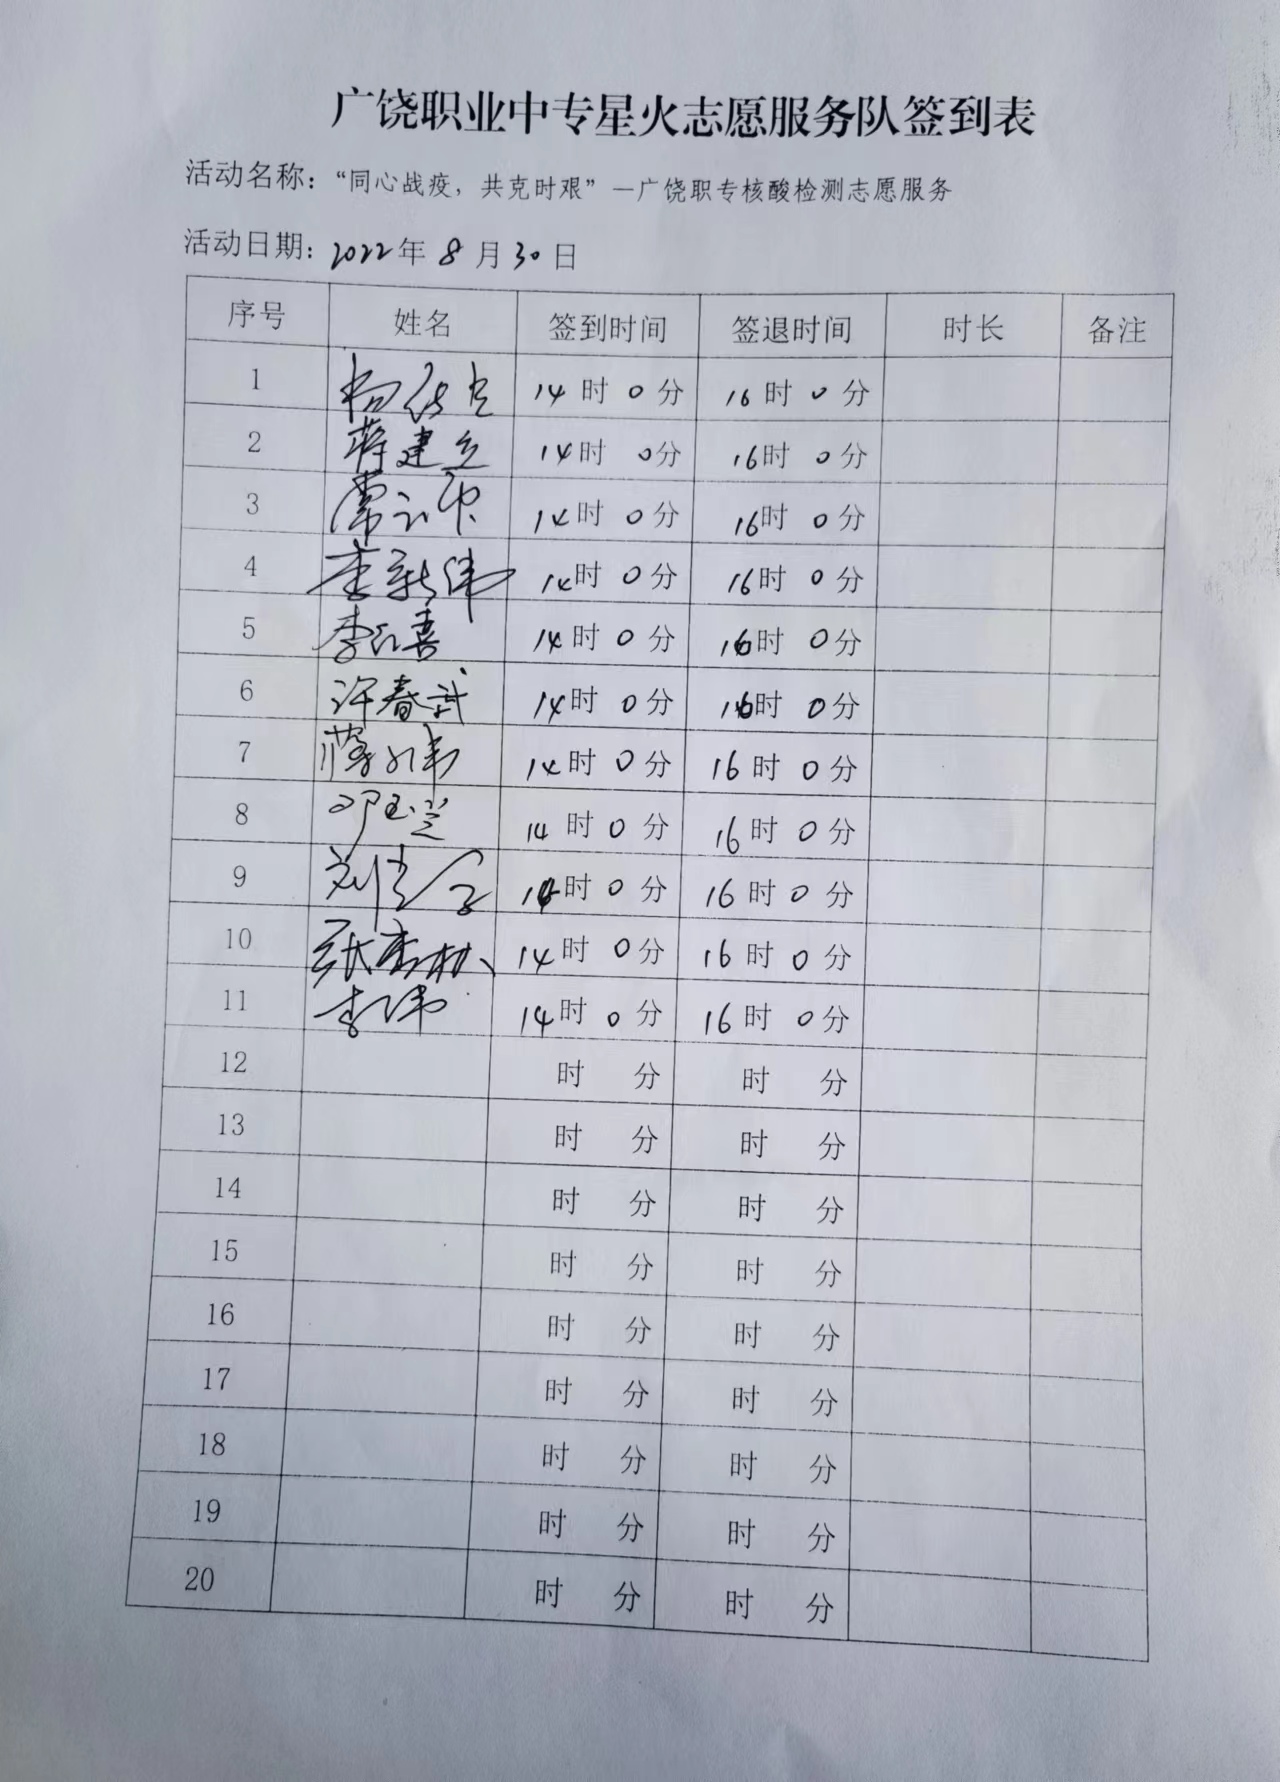 广饶职业中专星火志愿服务队签到表
活动名称：“同心战疫，共克时艰”—广饶职专核酸检测志愿服务
活动日期：2022年 8 月 30 日
序号 姓名 签到时间 签退时间 时长 备注
1 14时 0分 16时 0分
2 蒋建立 14时 0分 16时 0分
3 14时 0分 16时 0分
4 李新伟 14时 0分 16时 0分
5 李红喜 14时 0分 16时 0分
6 许春武 14时 0分 16时 0分
7 14时 0分 16时 0分
8 邓玉兰 14时 0分 16时 0分
9 14时 0分 16时 0分
10 14时 0分 16时 0分
11 李伟 14时 0分 16时 0分
12 时 分 时 分
13 时 分 时 分
14 时 分 时 分
15 时 分 时 分
16 时 分 时 分
17 时 分 时 分
18 时 分 时 分
19 时 分 时 分
20 时 分 时 分